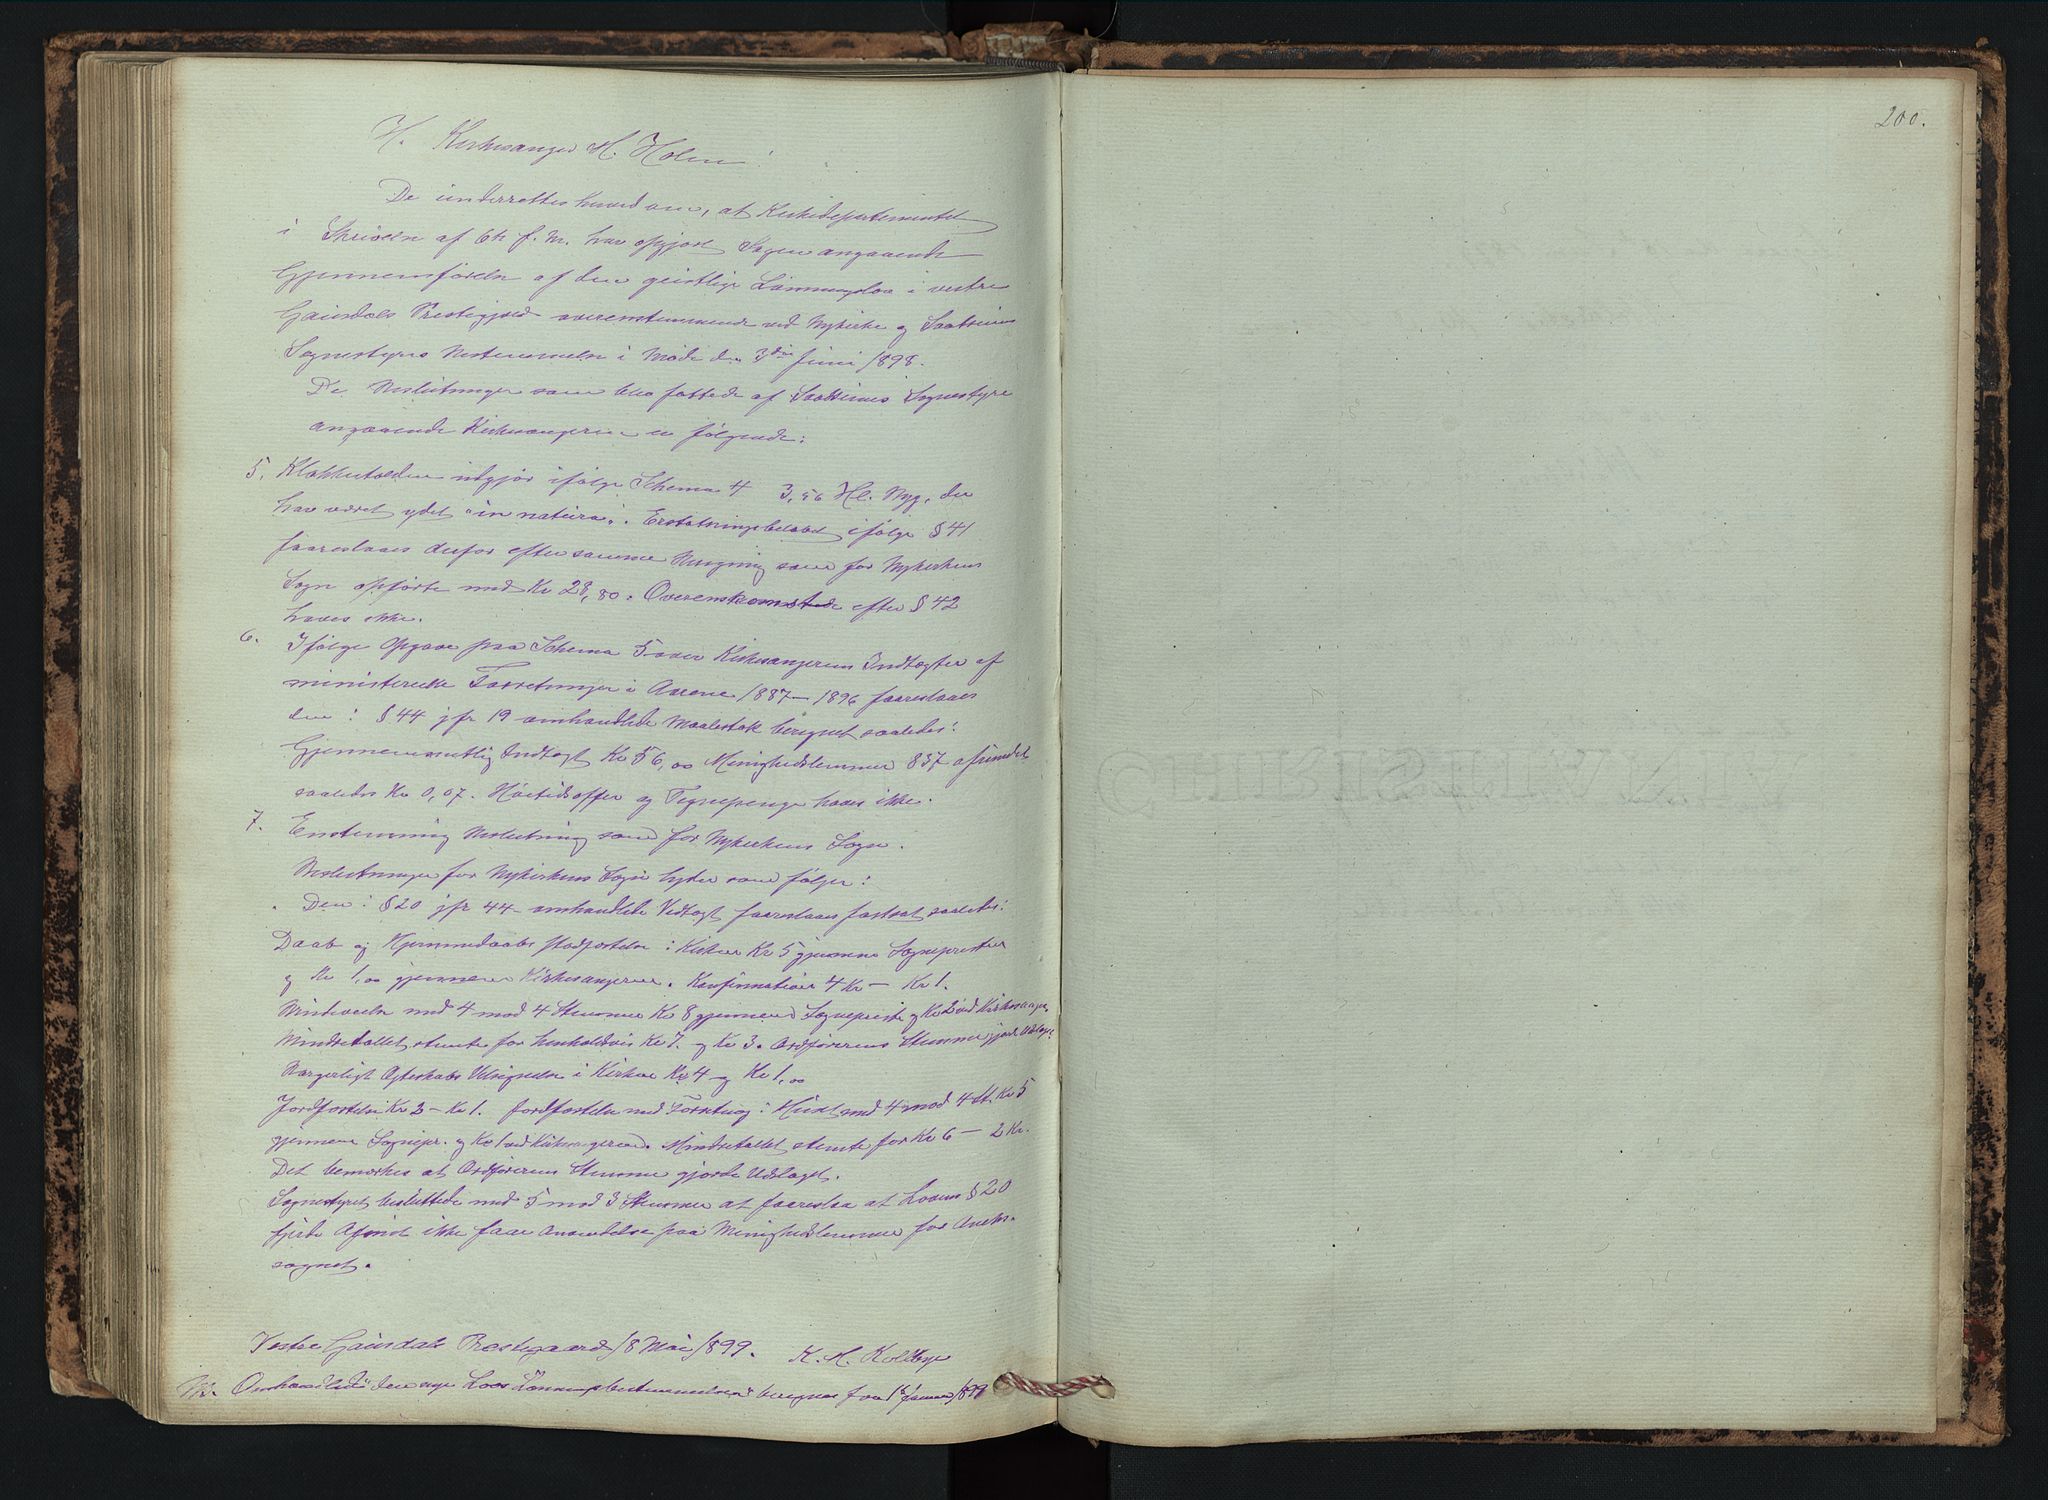 H. Kirkesanger H. Holen
De underrettes herved om, at Kirkedepartementet
i Skrivelse af 6te f. M. har afgjort Sagen angaaende
Gjennemførelse af den geistlige Lønningslov i vestre
Gausdals Prestegjeld overensstemmende med Nykirke og Saatveins
Sognestyres Bestemmelse i Møde den 3die Juni 1898.
De Beslutninger som blev fattede af Sognestyre
angaaende Kirkesangeren er følgende:
5. Klokkertolden udgjør ifølge Schema 4 3,56 Hl. Byg, der
har været ydet "in natura". Erstatningsbeløbet ifølge § 41
foareslaaes derfor efter samme Beregning som for Nykirkens
Sogn opført med Kr 28,80. Overenskomst efter § 42
haves ikke.
6. Ifølge Opgave paa Schema 5 over Kirkesangerens Indtægter af
ministerielle Forretninger i Aarene 1887–1896 foareslaaes
den i § 44 jfr 19 omhandlede Maalestok beregnet saaledes:
Gjennemsnitlig Indtægt Kr 56,00 Menighedslemmer 837 afrundet
saaledes Kr 0,07. Høitidsoffer og Tegnepenge haves ikke.
7. Enstemmig Beslutning som for Nykirkens Sogn.
Beslutninger for Nykirkens Sogn lyder som følger:
Den i § 20 jfr 44 omhandlede Vedtægt foareslaaes fastsat saaledes:
Daab og Hjemmedaabs Stadfæstelse i Kirken Kr 5 gjennem Sognepresten
og Kr 1,00 gjennem Kirkesangeren. Konfirmation 4 Kr – Kr 1.
med 4 mod 4 Stemmer Kr 8 gjennem Sognepreste og Kr 2 ved Kirkesanger.
Mindretallet stemte for henholdsvis Kr 7. og Kr 3. Ordførerens Stemme gjorde Udslaget.
Borgerligt Ægteskabs Velsignelse i Kirken Kr 4 og Kr 1,00
Jordfæstelse Kr 3 – Kr 1. Jordfæstelse med Foredrag i Huset med 4 mod 4 St. Kr 5
gjennem Sognepr. og Kr 1 ved Kirkesangeren. Mindretallet stemte for Kr 6 – 2 Kr.
Det bemærkes at Ordførerens Stemme gjorde Udslaget.
Sognestyret besluttede med 5 mod 3 Stemmer at foareslaa at Lovens § 20
fjerde Afsnit ikke faar Anvendelse paa Menighedslemmer for Aneks-
sognet.
Vestre Gausdals Præstegaard 18 Mai 1899. K. M. Kolberg
NB. Omhandlede den nye Lovs Lønningsbestemmelser beregnes fra 1ste Januar 1899
200.
CHRISTIANIA